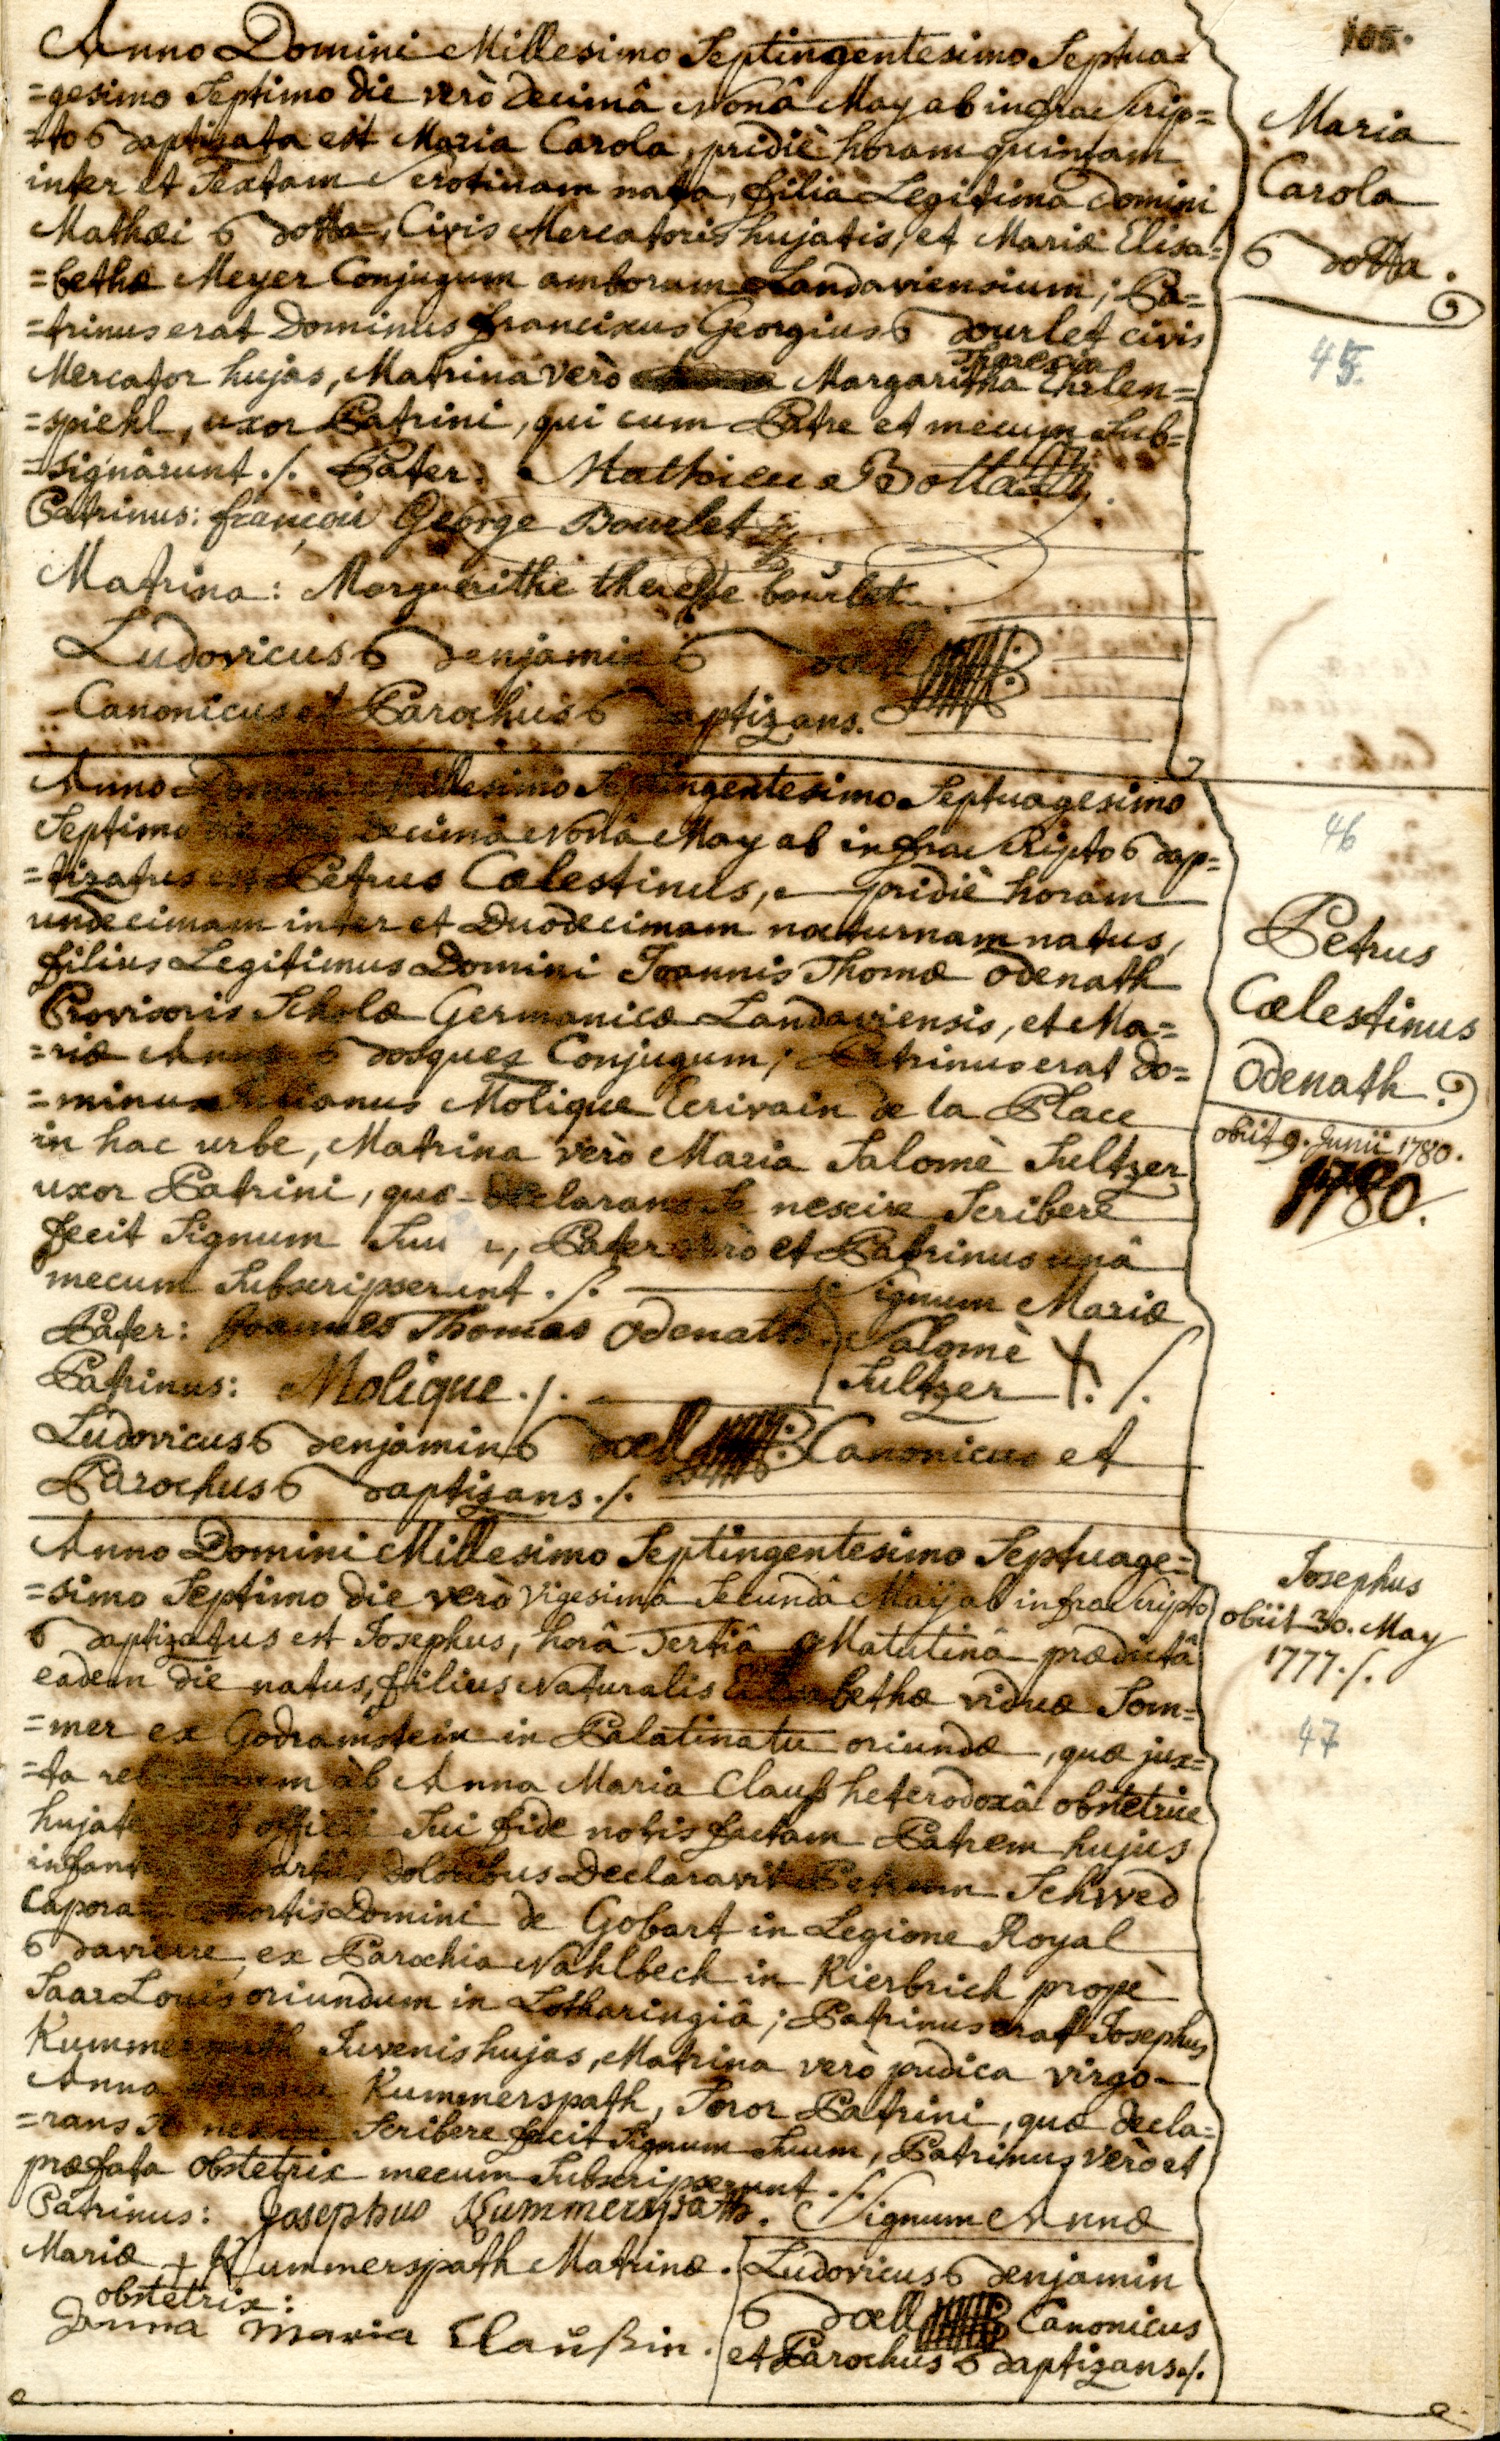 105.
Anno Domini Millesimo Septingentesimo Septua=
=gesimo Septimo die verò decimâ nonâ May ab infrascrip=
=to Baptizata est Maria Carola, pridiè horam quintam
inter et Sextam Serotinam nata, filia Legitima Domini
Mathæi Botta, Civis Mercatoris hujatis, et Mariæ Elisa=
=bethæ Meyer Conjugum amborum Landaviensium; Pa=
=trinus erat Dominus Franciscus Georgius Bourlet civis
Mercator hujas, Matrina verò Margaritha Theresia Ehrlen=
=spiehl, uxor Patrini, qui cum Patre et mecum Sub=
=signârunt ./. Pater: Mathieu Botta
Patrinus: françois George Bourlet
Matrina: Marguerithe theresse bourlet
Ludovicus Benjamin Boell
Canonicus et Parochus Baptizans.
Maria
Carola
Botta.
45.
Anno Domini Millesimo Septingentesimo Septuagesimo
Septimo die verò decimâ Nonâ May ab infrascripto Bap=
=tizatus est Petrus Cælestinus, pridiè horam
undecimam inter et Duodecimam nocturnam natus,
filius Legitimus Domini Joannis Thomæ Odenath
Provisoris Scholæ Germanicæ Landaviensis, et Ma=
=riæ Annæ Bosquez Conjugum; Patrinus erat Do=
=minus Molique Ecrivain de la Place
in hac urbe, Matrina verò Maria Salomè Sultzer
uxor Patrini, quæ declarans Se nescire Scribere
fecit Signum Suum, Pater verò et Patrinus unâ
mecum Subscripserunt ./. Signum Mariæ
Pater: Joannes Thomas Odenath Salomè
Patrinus: Molique ./. Sultzer +. /.
Ludovicus Benjamin Boell Canonicus et
Parochus Baptizans ./.
46
Petrus
Cælestinus
Odenath.
obiit 9. Junii 1780.
1780.
Anno Domini Millesimo Septingentesimo Septuage=
=simo Septimo die verò vigesimâ Secundâ Maij ab infrascripto
Baptizatus est Josephus, horâ Tertiâ Matutinâ prædictâ
eâdem die natus, filius Naturalis Elisabethæ viduæ Som=
=mer ex Godramstein in Palatinatu oriundæ, quæ jux=
=ta relationem àb Anna Maria Clauß heterodoxâ obstetrice
hujate sub officii Sui fide nobis factam Patrem hujus
infantis partûs doloribus Declaravit Petrum Schwed
Caporal Cohortis Domini de Gobart in Legione Royal
Baviere, ex Parochia Nahlbech in Kierbrich propè
SaarLouis oriundum in Lotharingiâ; Patrinus erat Josephus
Kummerspath Juvenis hujas, Matrina verò pudica virgo
Anna Maria Kummerspath, Soror Patrini, quæ decla=
=rans Se nescire Scribere fecit Signum Suum, Patrinus verò et
præfata obstetrix mecum Subscripserunt ./.
Patrinus: Josephus Kummerspath. Signum Annæ
Mariæ + Kummerspath Matrinæ. Ludovicus Benjamin
obstetrix: Boell Canonicus
Anna Maria Claußin. et Parochus Baptizans ./.
Josephus
obiit 30. May
1777 ./.
47